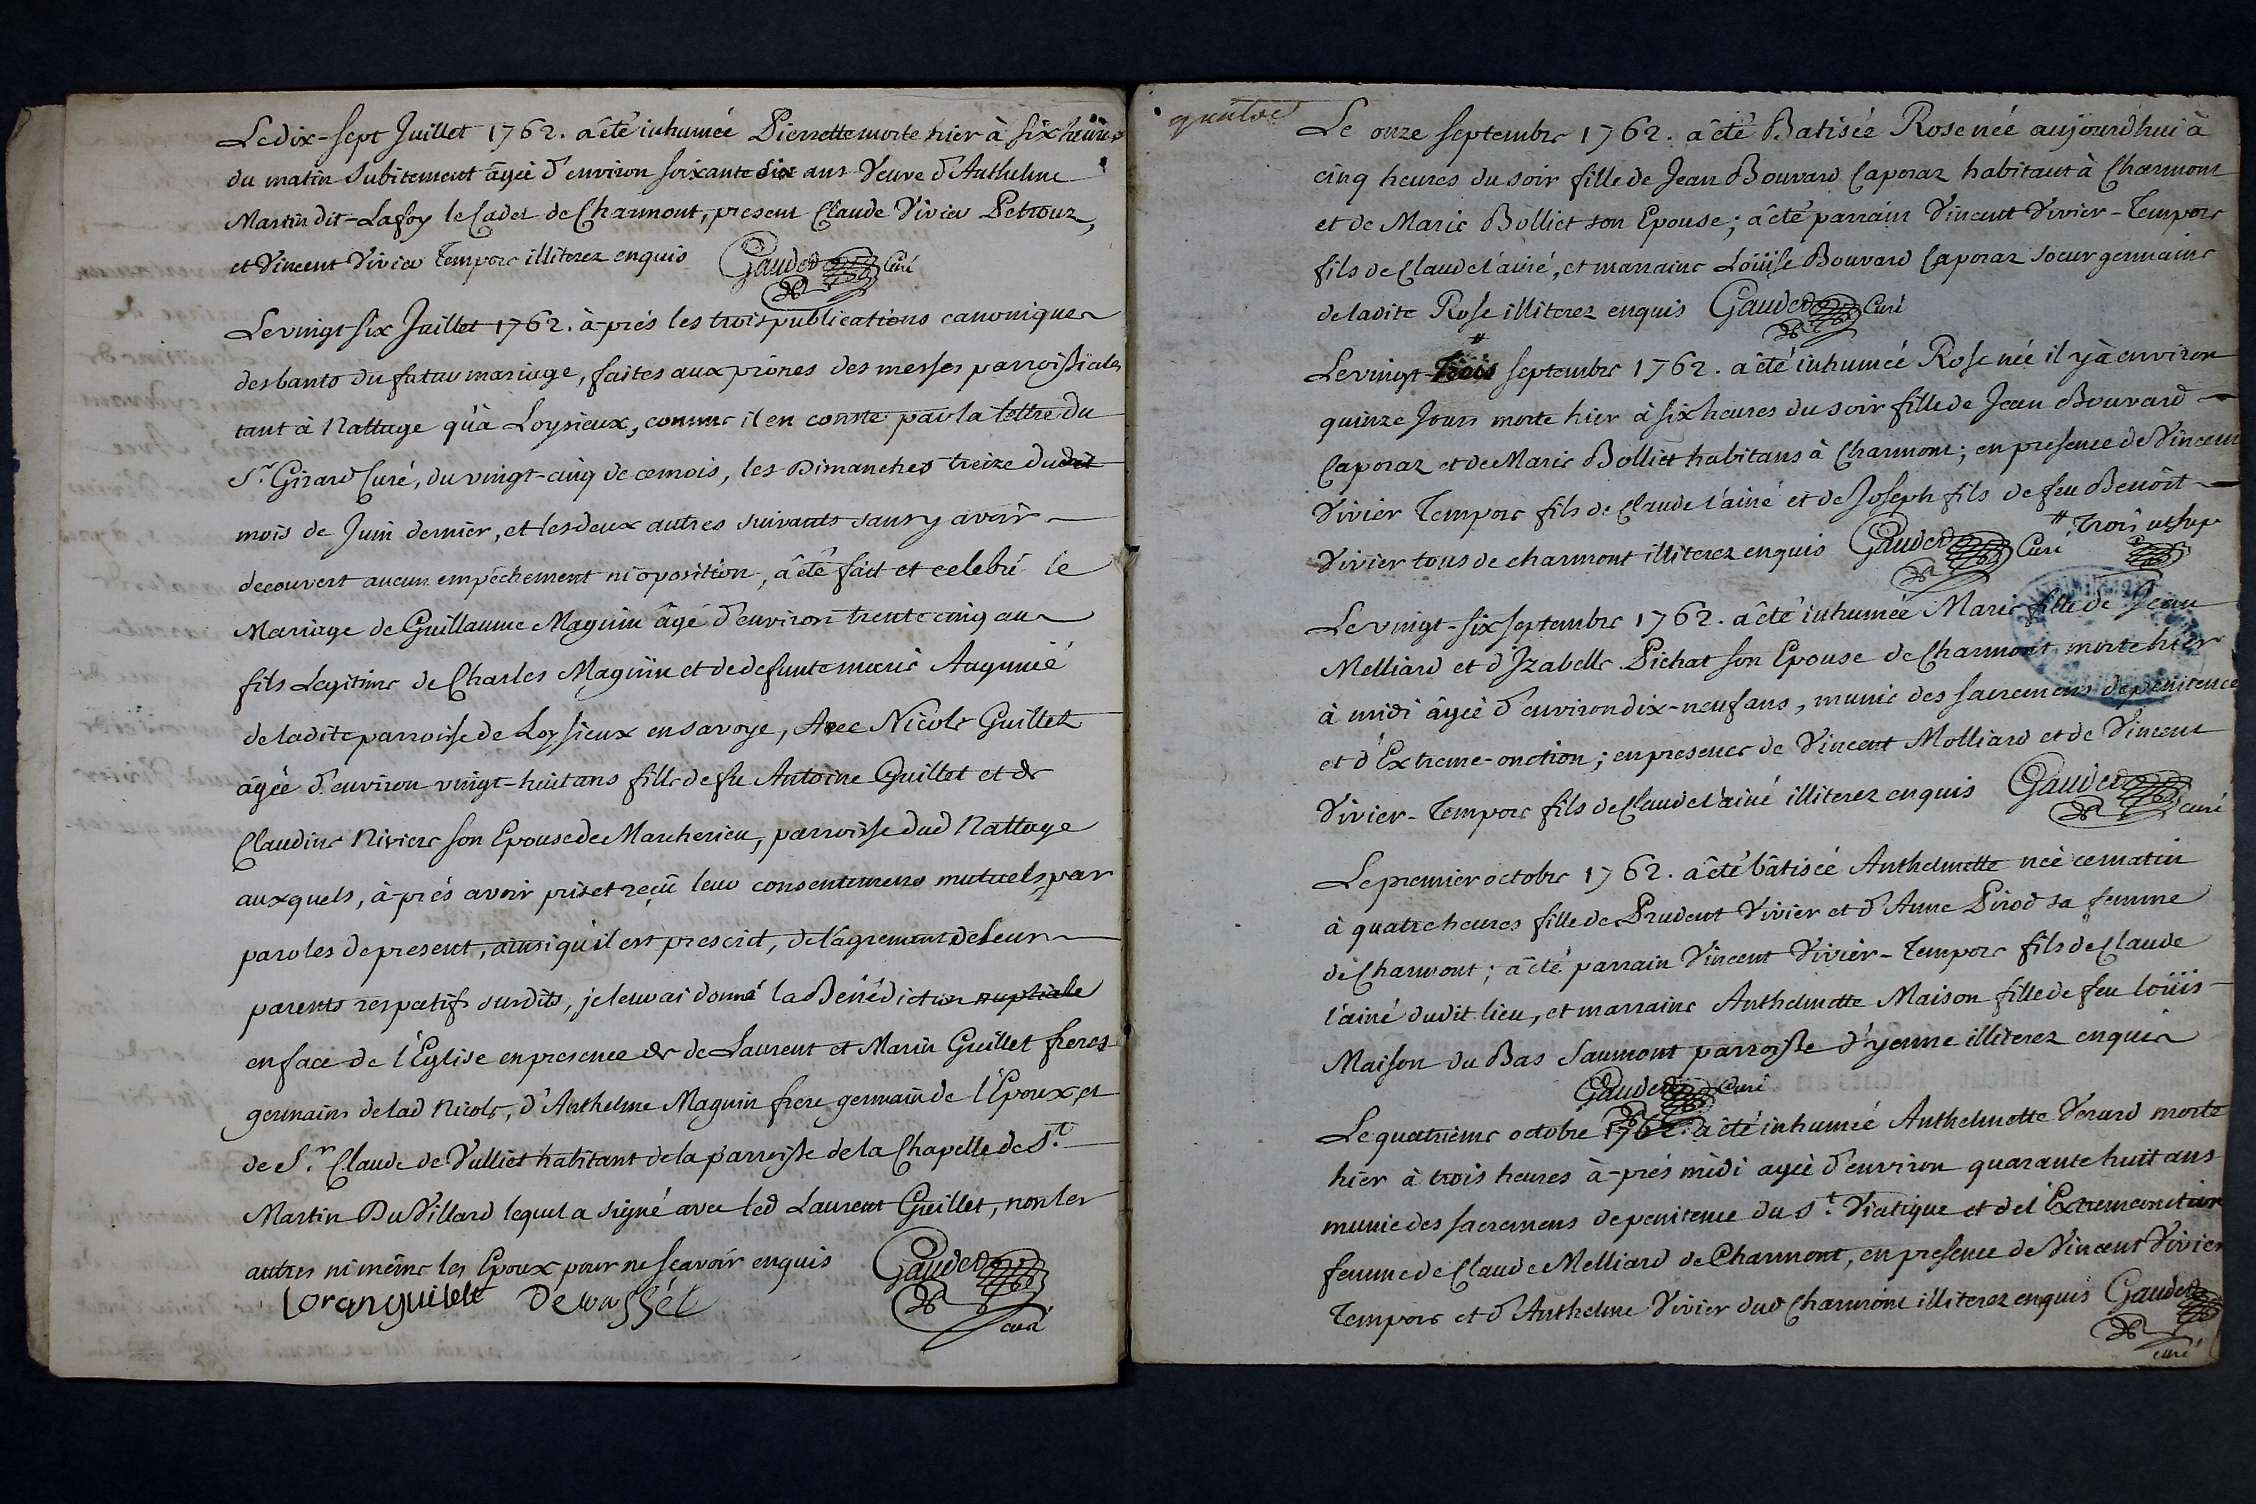 Le dix-sept Juillet 1762. a êté inhumée Pierrette morte hier à six heures
du matin subitement âgée d'environ soixante dix ans veuve d'Anthelme
Martin dit-Lafoy le Cadet de Charmont, present Claude Vivier Petrouz,
et Vincent Vivier Tempore illiterez enquis Gauded Curé
Le vingt six Juillet 1762. à-prés les trois publications canoniques
des bants du futur mariage, faites aux prônes des messes parroissiales
tant à Nattage qu'à Loysieux, comme il en conste par la lettre du
Sr. Girard Curé, du vingt-cinq de ce mois, les Dimanches treize dudit
mois de Juin dernier, et les deux autres suivants sans y avoir
decouvert aucun empêchement ni oposition, â êté fait et celebré le
Mariage de Guillaume Maguin âgé d'environ trente cinq ans
fils Legitime de Charles Maguin et de defunte marie
de ladite parroisse de Loysieux en savoye, Avec Nicole Guillet
âgée d'environ vingt-huit ans fille de fû Antoine Guillet et de
Claudine Riviere son Epouse de Marcherieu, parroisse dud Nattage
auxquels, à-prés avoir pris et reçû leur consentemens mutuels par
paroles de present, ainsi qu'il est prescrit, de l'agrement de leurs
parents respectifs susdits, je leur ai donné la Bénédiction nuptiale
en face de l'Eglise en presence de de Laurent et Marin Guillet freres
germains de lad Nicole, d'Anthelme Maguin frere germain de l'Epoux, et
de Sr. Claude de Vulliet habitant de la parroisse de la Chapelle de St.
Martin Du Villard lequel a signé avec led Laurent Guillet, non les
autres ni même les Epoux pour ne scavoir enquis Gauded
loran guillet
curé
Le onze septembre 1762. a êté Batisée Rose née aujourd'hui à
cinq heures du soir fille de Jean Bouvard Caporaz habitant à Charmont
et de Marie Bolliet son Epouse; â êté parrain Vincent Vivier-Tempore
fils de Claude l'ainé, et marraine Loüise Bouvard Caporaz soeur germaine
de ladite Rose illiterez enquis Gauded Curé
Le vingt-trois septembre 1762. a êté inhumée Rose née il y à environ
quinze Jours morte hier à six heures du soir fille de Jean Bouvard
Caporaz et de Marie Bolliet habitans à Charmont; en presence de Vincent
Vivier Tempore fils de Claude l'ainé et de Joseph fils de feu Benoît
# Trois ut sup
Vivier tous de charmont illiterez enquis Gauded Curé
Le vingt-six septembre 1762. a êté inhumée Marie fille de Jean
Melliard et d'Izabelle Pichat son Epouse de Charmont morte hier
à midi âgée d'environ dix-neuf ans, munie des sacremens de penitence
et d'Extreme-onction; en presence de Vincent Molliard et de Vincent
Vivier-Tempore fils de Claude l'ainé illiterez enquis Gauded
curé
Le premier octobre 1762. a êté bâtisée Anthelmette née ce matin
à quatre heures fille de Prudent Vivier et d'Anne Pirod sa femme
de Charmont; a êté parrain Vincent Vivier-Tempore fils de Claude
l'ainé dudit lieu, et marraine Anthelmette Maison fille de feu loüis
Maison du Bas Saumont parroisse d'yenne illiterez enquis
Gauded Curé
Le quatrieme octobre 1762. a êté inhumée Anthelmette Verard morte
hier à trois heures à-prés midi agée d'environ quarante huit ans
munie des sacremens de penitence du St. Viatique et de l'Extremeonction
femme de Claude Melliard de Charmont, en presence de Vincent Vivier
Tempore et d'Anthelme Vivier dud Charmont illiterez enquis Gauded
curé